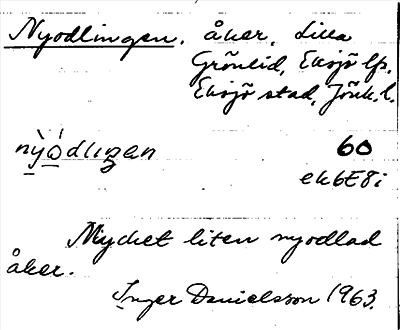 Nyodlingen, åker, Lilla
Grönlid, Eksjö lfs.
Eksjö stad, Jönk. l.
nỳòdlıŋen 60
ek6E8i
Mycket liten nyodlad
åker.
Inger Danielsson 1963.